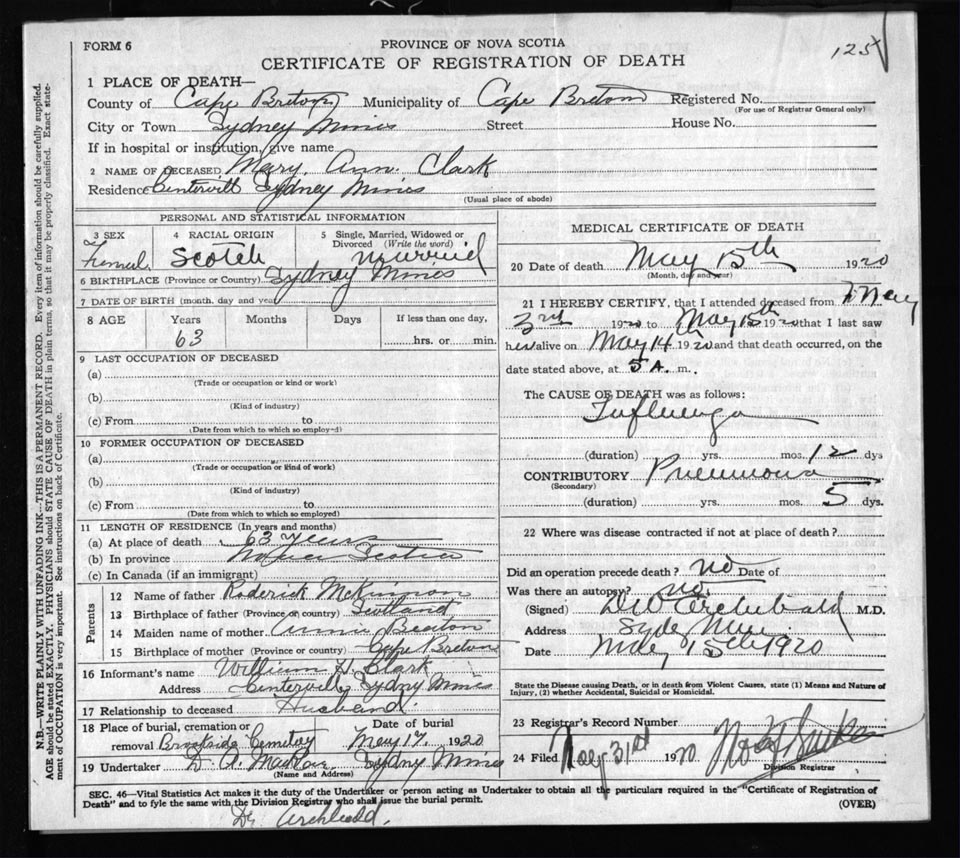 FORM 6
PROVINCE OF NOVA SCOTIA
CERTIFICATE OF REGISTRATION OF DEATH
125
1 PLACE OF DEATH—
County of Cape Breton Municipality of Cape Breton Registered No.
(For use of Registrar General only)
City or Town Sydney Mines Street House No.
If in hospital or institution, give name
2 NAME OF DECEASED Mary Ann Clark
Residence Sydney Mines
(Usual place of abode)
PERSONAL AND STATISTICAL INFORMATION
3 SEX
Female
4 RACIAL ORIGIN
Scotch
5 Single, Married, Widowed or Divorced (Write the word)
Married
6 BIRTHPLACE (Province or Country) Sydney Mines
7 DATE OF BIRTH (month, day and year)
8 AGE Years Months Days If less than one day,
63 hrs. or min.
9 LAST OCCUPATION OF DECEASED
(a)
(Trade or occupation or kind or work)
(b)
(Kind of industry)
(c) From to
(Date from which to which so employ-d)
10 FORMER OCCUPATION OF DECEASED
(a)
(Trade or occupation or kind of work)
(b)
(Kind of industry)
(c) From to
(Date from which to which so employed)
11 LENGTH OF RESIDENCE (In years and months)
(a) At place of death 63 years
(b) In province Nova Scotia
(c) In Canada (if an immigrant)
Parents
12 Name of father Roderick McKinnon
13 Birthplace of father (Province or country) Scotland
14 Maiden name of mother Annie Beaton
15 Birthplace of mother (Province or country) Cape Breton
16 Informant's name William H. Clark
Address Centerville Sydny Mines
17 Relationship to deceased Husband
18 Place of burial, cremation or removal Brookside Cemetery
Date of burial
May 17, 1920
19 Undertaker D. A. Sydney Mines
(Name and Address)
MEDICAL CERTIFICATE OF DEATH
20 Date of death May 15th 1920
(Month, day and year)
21 I HEREBY CERTIFY, that I attended deceased from May
3rd 1920 to May 15th 1920 that I last saw
her alive on May 14th 1920 and that death occurred, on the
date stated above, at 5 A. m.
The CAUSE OF DEATH was as follows:
Influenza
(duration) yrs. mos. 12 dys
CONTRIBUTORY Pneumonia
(Secondary)
(duration) yrs. mos. 5 dys.
22 Where was disease contracted if not at place of death?
Did an operation precede death? no Date of
Was there an autopsy? no
(Signed) Archibald M.D.
Address
Date May 15th 1920
State the Disease causing Death, or in death from Violent Causes, state (1) Means and Nature of
Injury, (2) whether Accidental, Suicidal or Homicidal.
23 Registrar's Record Number
24 Filed May 31st 1920
Division Registrar
SEC. 46—Vital Statistics Act makes it the duty of the Undertaker or person acting as Undertaker to obtain all the particulars required in the "Certificate of Registration of
Death" and to fyle the same with the Division Registrar who shall issue the burial permit.
(OVER)
Dr Archibald.
N.B.—WRITE PLAINLY WITH UNFADING INK—THIS IS A PERMANENT RECORD. Every item of information should be carefully supplied.
AGE should be stated EXACTLY. PHYSICIANS should STATE CAUSE OF DEATH in plain terms, so that it may be properly classified. Exact state-
ment of OCCUPATION is very important. See instructions on back of Certificate.